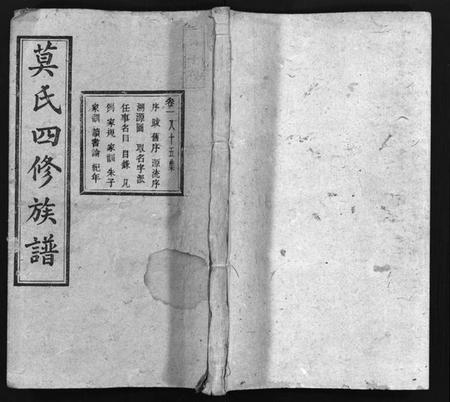 莫氏四修族譜
卷一 八十五葉
序 跋 舊序 源流序
溯源圖 取名字派
任事名目 目錄 凡
例 家規 家訓 朱子
家訓 讀書論 紀年